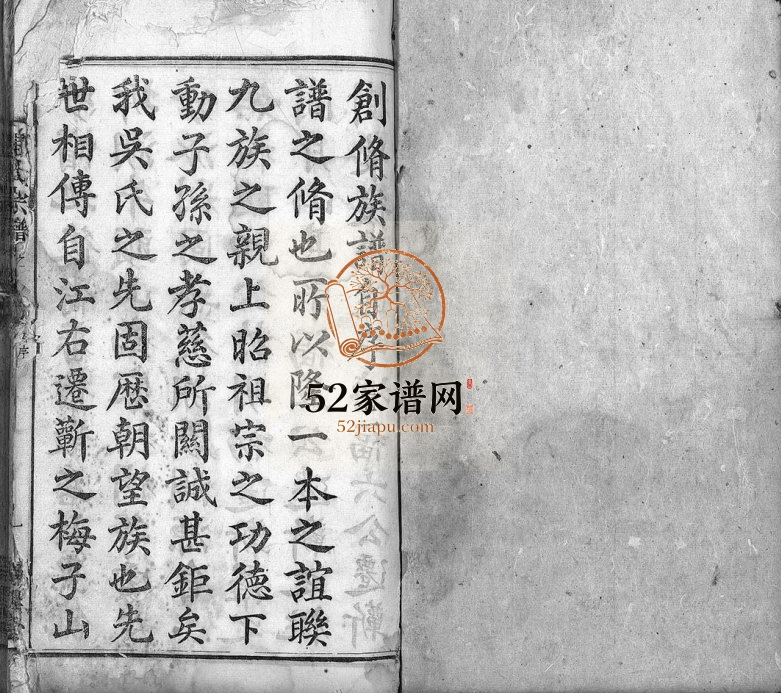 創脩族譜自序
譜之脩也所以隆一本之誼聯
九族之親上昭祖宗之功德下
動子孫之孝慈所關誠甚鉅矣
我吳氏之先固歷朝望族也先
世相傳自江右遷蘄之梅子山
宗譜
52家谱网
52jiapu.com